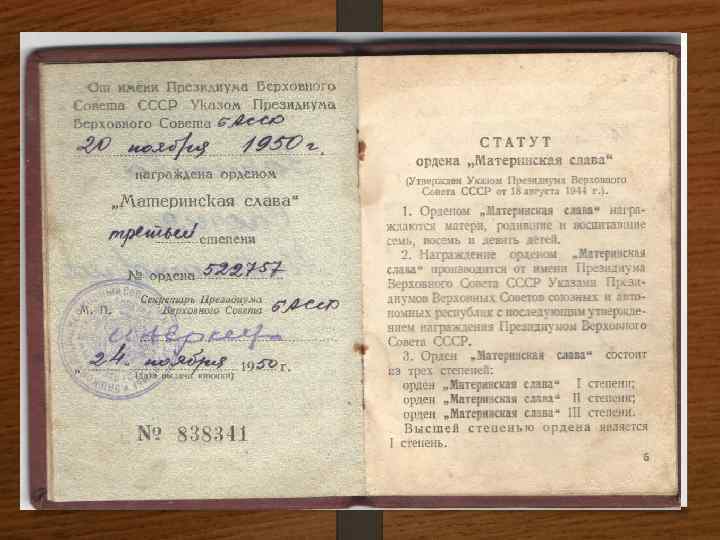 От имени Президиума Верховного
Совета СССР Указом Президиума
Верховного Совета БАССР
20 ноября 1950 г.
награждена орденом
„Материнская слава“
третьей степени
№ ордена 522757
Секретарь Президиума
М. П. Верховного Совета БАССР
„24 ноября 1950 г.
(дата выдачи книжки)
№ 838341
СТАТУТ
ордена „Материнская слава“
(Утвержден Указом Президиума Верховного
Совета СССР от 18 августа 1944 г.).
1. Орденом „Материнская слава“ награ-
ждаются матери, родившие и воспитавшие
семь, восемь и девять детей.
2. Награждение орденом „Материнская
слава“ производится от имени Президиума
Верховного Совета СССР Указами Прези-
диумов Верховных Советов союзных и авто-
номных республик с последующим утвержде-
нием награждения Президиумом Верховного
Совета СССР.
3. Орден „Материнская слава“ состоит
из трех степеней:
орден „Материнская слава“ I степени;
орден „Материнская слава“ II степени;
орден „Материнская слава“ III степени.
Высшей степенью ордена является
I степень.
6